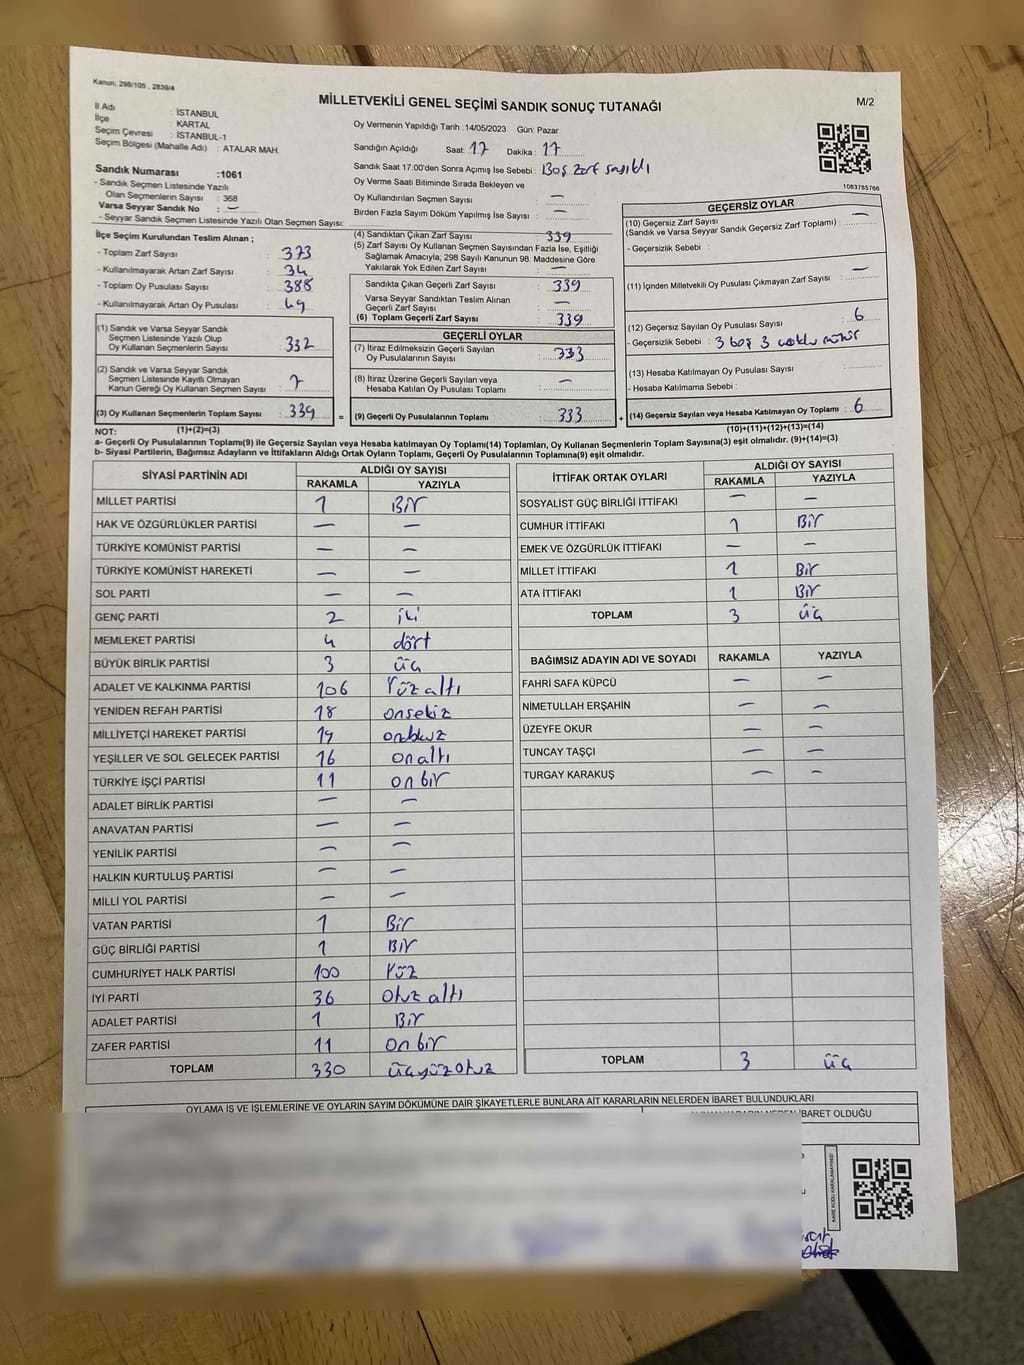 Kanun; 298/105 , 2839/4
MİLLETVEKİLİ GENEL SEÇİMİ SANDIK SONUÇ TUTANAĞI
M/2
İl Adı : İSTANBUL
İlçe : KARTAL
Seçim Çevresi : İSTANBUL-1
Seçim Bölgesi (Mahalle Adı) : ATALAR MAH.
Oy Vermenin Yapıldığı Tarih :14/05/2023 Gün: Pazar
Sandığın Açıldığı Saat: 17 Dakika : 17
Sandık Saat 17:00'den Sonra Açımış İse Sebebi : Boş zarf sayıldı
Oy Verme Saati Bitiminde Sırada Bekleyen ve
Oy Kullandırılan Seçmen Sayısı : —
Birden Fazla Sayım Dökümü Yapılmış İse Sayısı : —
1083785766
Sandık Numarası :1061
- Sandık Seçmen Listesinde Yazılı
Olan Seçmenlerin Sayısı : 368
Varsa Seyyar Sandık No : —
- Seyyar Sandık Seçmen Listesinde Yazılı Olan Seçmen Sayısı:
İlçe Seçim Kurulundan Teslim Alınan ;
- Toplam Zarf Sayısı : 373
- Kullanılmayarak Artan Zarf Sayısı : 34
- Toplam Oy Pusulası Sayısı : 388
- Kullanılmayarak Artan Oy Pusulası : 49
(1) Sandık ve Varsa Seyyar Sandık
Seçmen Listesinde Yazılı Olup
Oy Kullanan Seçmenlerin Sayısı : 332
(2) Sandık ve Varsa Seyyar Sandık
Seçmen Listesinde Kayıtlı Olmayan
Kanun Gereği Oy Kullanan Seçmen Sayısı : 7
(3) Oy Kullanan Seçmenlerin Toplam Sayısı : 339
(4) Sandıktan Çıkan Zarf Sayısı : 339
(5) Zarf Sayısı Oy Kullanan Seçmen Sayısından Fazla İse, Eşitliği
Sağlamak Amacıyla; 298 Sayılı Kanunun 98. Maddesine Göre
Yakılarak Yok Edilen Zarf Sayısı : —
Sandıkta Çıkan Geçerli Zarf Sayısı : 339
Varsa Seyyar Sandıktan Teslim Alınan
Geçerli Zarf Sayısı : —
(6) Toplam Geçerli Zarf Sayısı : 339
GEÇERLİ OYLAR
(7) İtiraz Edilmeksizin Geçerli Sayılan
Oy Pusulalarının Sayısı : 333
(8) İtiraz Üzerine Geçerli Sayılan veya
Hesaba Katılan Oy Pusulası Toplamı : —
= (9) Geçerli Oy Pusulalarının Toplamı : 333
GEÇERSİZ OYLAR
(10) Geçersiz Zarf Sayısı
(Sandık ve Varsa Seyyar Sandık Geçersiz Zarf Toplamı) : —
- Geçersizlik Sebebi :
(11) İçinden Milletvekili Oy Pusulası Çıkmayan Zarf Sayısı : —
(12) Geçersiz Sayılan Oy Pusulası Sayısı : 6
- Geçersizlik Sebebi : 3 boş 3 mühür
(13) Hesaba Katılmayan Oy Pusulası Sayısı :
- Hesaba Katılmama Sebebi :
+ (14) Geçersiz Sayılan veya Hesaba Katılmayan Oy Toplamı : 6
NOT: (1)+(2)=(3)
(10)+(11)+(12)+(13)=(14)
a- Geçerli Oy Pusulalarının Toplamı(9) ile Geçersiz Sayılan veya Hesaba katılmayan Oy Toplamı(14) Toplamları, Oy Kullanan Seçmenlerin Toplam Sayısına(3) eşit olmalıdır. (9)+(14)=(3)
b- Siyasi Partilerin, Bağımsız Adayların ve İttifakların Aldığı Ortak Oyların Toplamı, Geçerli Oy Pusulalarının Toplamına(9) eşit olmalıdır.
SİYASİ PARTİNİN ADI ALDIĞI OY SAYISI
RAKAMLA YAZIYLA
MİLLET PARTİSİ 1 Bir
HAK VE ÖZGÜRLÜKLER PARTİSİ — —
TÜRKİYE KOMÜNİST PARTİSİ — —
TÜRKİYE KOMÜNİST HAREKETİ — —
SOL PARTİ — —
GENÇ PARTİ 2 iki
MEMLEKET PARTİSİ 4 dört
BÜYÜK BİRLİK PARTİSİ 3 üç
ADALET VE KALKINMA PARTİSİ 106 Yüz altı
YENİDEN REFAH PARTİSİ 18 onsekiz
MİLLİYETÇİ HAREKET PARTİSİ 19 ondokuz
YEŞİLLER VE SOL GELECEK PARTİSİ 16 on altı
TÜRKİYE İŞÇİ PARTİSİ 11 on bir
ADALET BİRLİK PARTİSİ — —
ANAVATAN PARTİSİ — —
YENİLİK PARTİSİ — —
HALKIN KURTULUŞ PARTİSİ — —
MİLLİ YOL PARTİSİ — —
VATAN PARTİSİ 1 Bir
GÜÇ BİRLİĞİ PARTİSİ 1 Bir
CUMHURİYET HALK PARTİSİ 100 Yüz
İYİ PARTİ 36 otuz altı
ADALET PARTİSİ 1 Bir
ZAFER PARTİSİ 11 on bir
TOPLAM 330 üçyüzotuz
İTTİFAK ORTAK OYLARI ALDIĞI OY SAYISI
RAKAMLA YAZIYLA
SOSYALIST GÜÇ BİRLİĞİ İTTİFAKI — —
CUMHUR İTTİFAKI 1 Bir
EMEK VE ÖZGÜRLÜK İTTİFAKI — —
MİLLET İTTİFAKI 1 Bir
ATA İTTİFAKI 1 Bir
TOPLAM 3 üç
BAĞIMSIZ ADAYIN ADI VE SOYADI RAKAMLA YAZIYLA
FAHRİ SAFA KÜPCÜ — —
NİMETULLAH ERŞAHİN — —
ÜZEYFE OKUR — —
TUNCAY TAŞÇI — —
TURGAY KARAKUŞ — —
TOPLAM 3 üç
OYLAMA İŞ VE İŞLEMLERİNE VE OYLARIN SAYIM DÖKÜMÜNE DAİR ŞİKAYETLERLE BUNLARA AİT KARARLARIN NELERDEN İBARET BULUNDUKLARI
İBARET OLDUĞU
KARE KODU KARALAMAYINIZ!